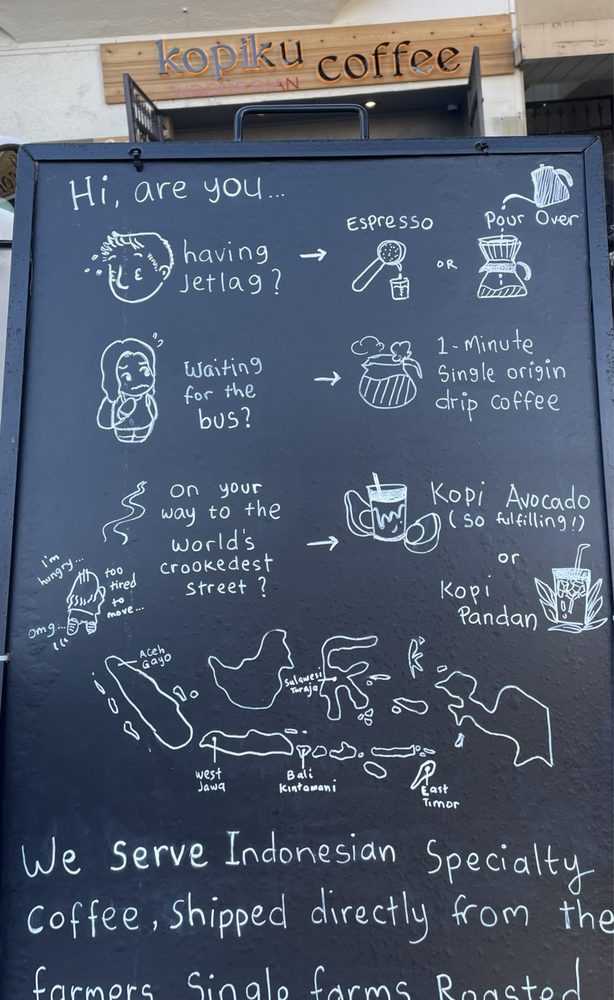 kopiku coffee
INDONESIAN
Hi, are you...
having
Jetlag?
Espresso
OR
Pour Over
Waiting
for the
bus?
1-Minute
Single origin
drip coffee
on your
way to the
world's
crookedest
street?
Kopi Avocado
(so fulfilling!)
or
Kopi
Pandan
I'm
hungry...
too
tired
to
move...
omg...
Aceh
Gayo
Sulawesi
Toraja
West
Jawa
Bali
Kintamani
East
Timor
We serve Indonesian Specialty
Coffee, shipped directly from the
farmers. Single farms. Roasted